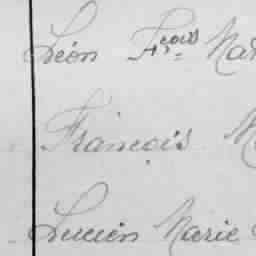 Léon Fçois Mar
François M
Lucien Marie